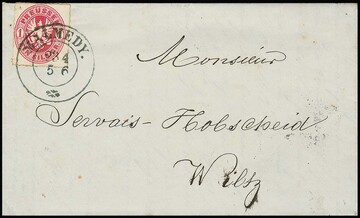 PREUSSEN
MALMEDY.
24
5 6
Monsieur
Servais-Hobscheid
Wiltz